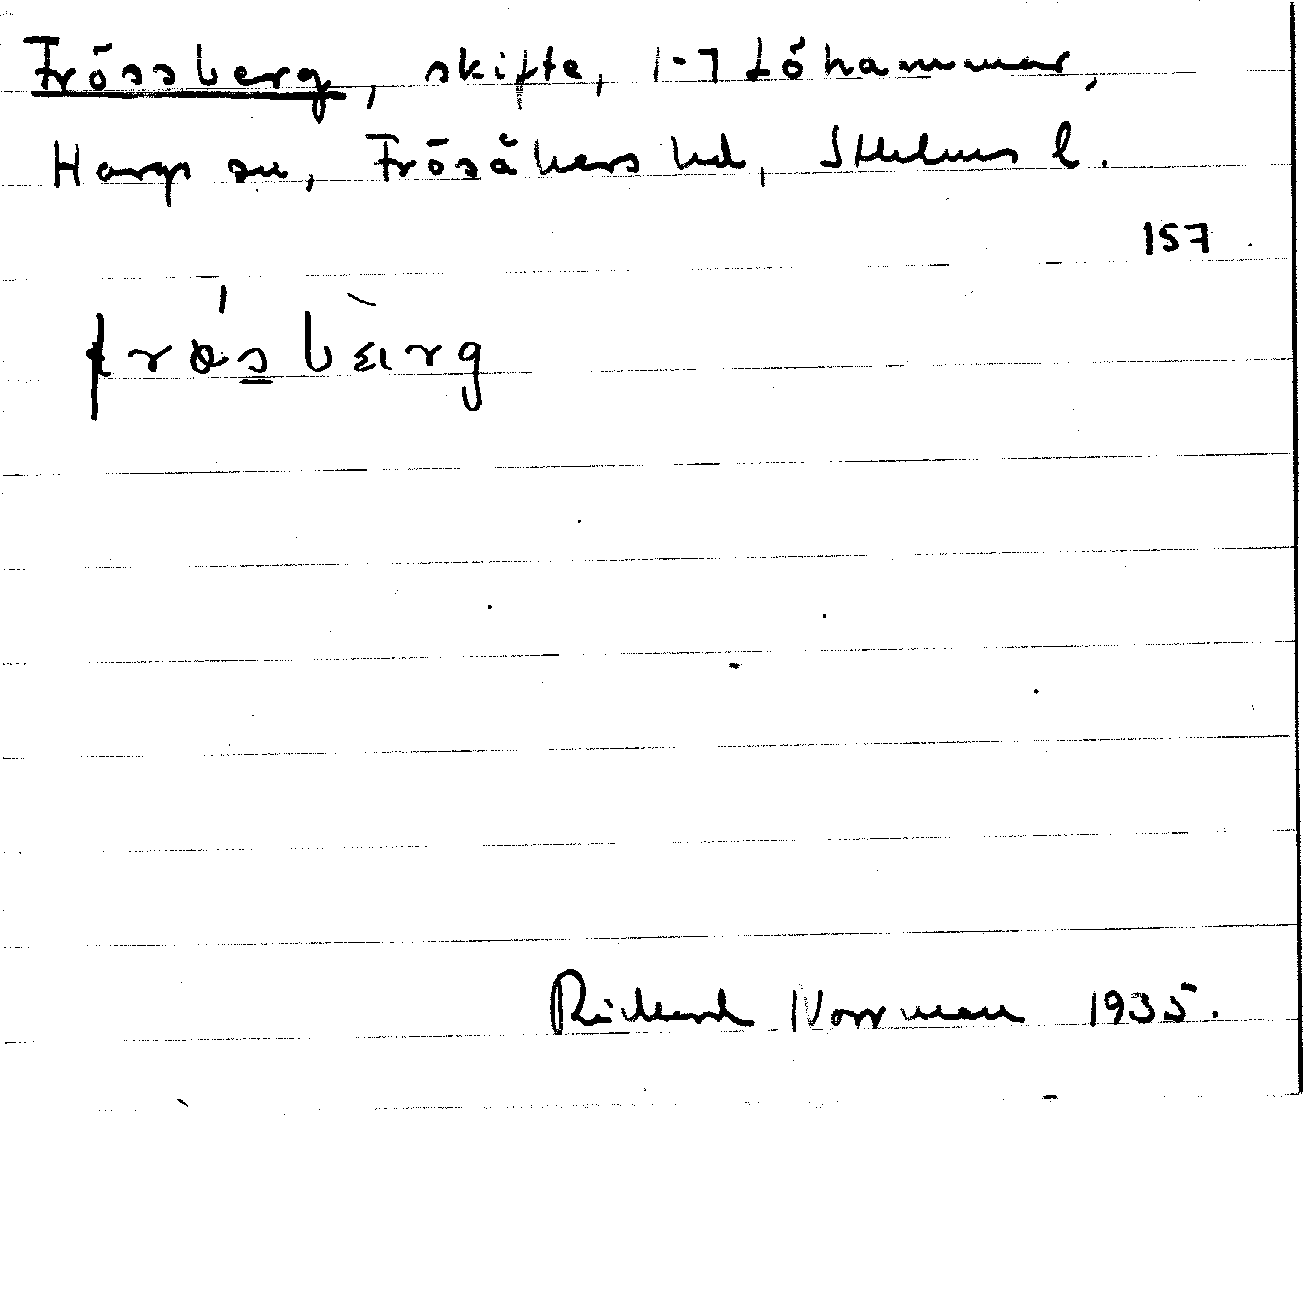 Frössberg, skifte, 1-7 Löhammar,
Hargs sn, Frösåkers hd, Sthlms l.
157
frøsbærg
Rickard Norrman 1935.